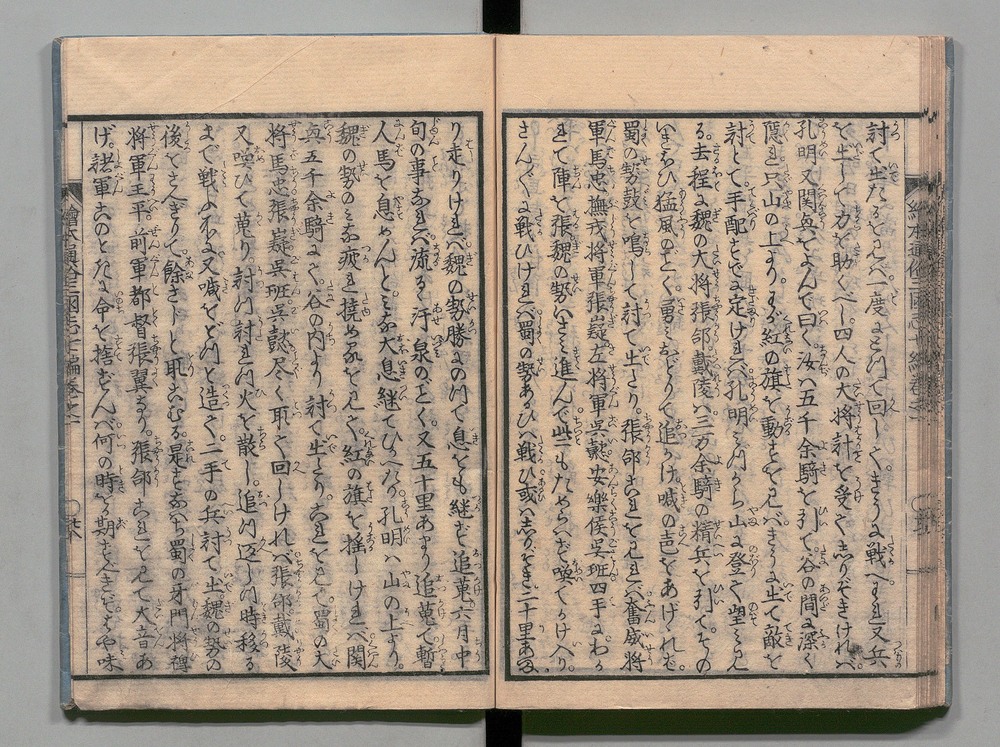 討て出たるを見バ一度に取て回しくきうに戦へ又兵
を出して力を助くべし四人の大将計を受てしりぞきけれバ
孔明又関興をよんで曰く汝ハ五千余騎を引て谷の間に深く
隠れ只山の上より紅の旗を動すを見バきうに出て敵を
討とて手配すでに定けれバ孔明ミづから山に登て望ミ見
る去程に魏の大将張郃戴陵ハ三万余騎の精兵を引てその
いきほひ猛風のごとく勇ミ追かけ喊の声をあげけれバ
蜀の勢鼓を鳴して討て出たり。張郃これを見れバ奮威将
軍馬忠撫戎将軍張嶷左将軍呉懿安楽侯呉班四手にわか
れて陣を張魏の勢いさミ進んで些ともためらハず喚てかけ入り。
さんざんに戦ひけれバ蜀の勢あるひハ戦ひ或ハしりぞき二十里あまり
り走りけれバ魏の勢勝にのりて息をも継ず追蒐六月中
旬の事なれバ流るゝ汗泉のごとく又五十里あまり追蒐て暫
人馬を息めんとミな大息継てひかへたり孔明ハ山の上より。
魏の勢のミな疲れ撓める見て紅の旗を揺しけれバ関
興五千余騎にて谷の内より討て出たり。これを見て蜀の大
将馬忠張嶷呉班呉懿尽く取て回しけれバ張郃戴陵
又喚ひて蒐り。討つ討れつ火を散し追つ返しつ時移る
まで戦ふ処に又喊をどつと造て二手の兵討て出魏の勢の
後をさへぎりて餘さじと取こむる是すなハち蜀の牙門将裨
将軍王平。前軍都督張翼なり。張郃これを見て大音あ
げ。諸軍このときに命を捨ずんバ何の時を期すべきぞや味